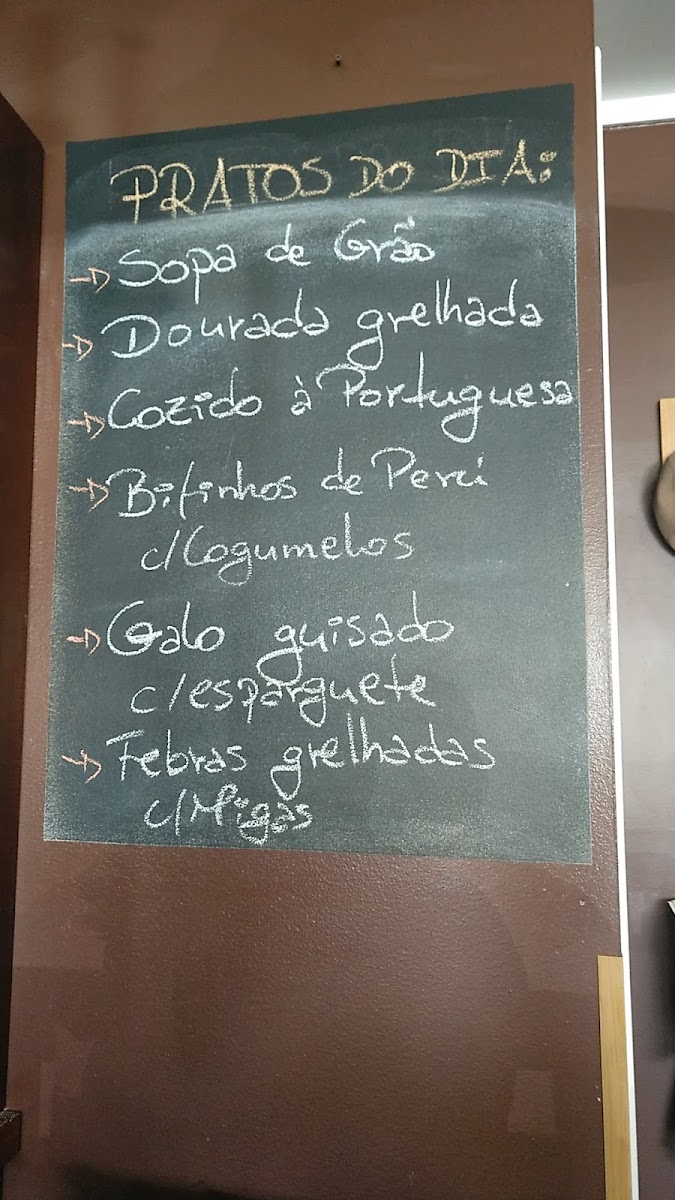 PRATOS DO DIA:
→ Sopa de Grão
→ Dourada grelhada
→ Cozido à Portuguesa
→ Bifinhos de Perú
c/Cogumelos
→ Galo guisado
c/esparguete
→ Febras grelhadas
c/Migas